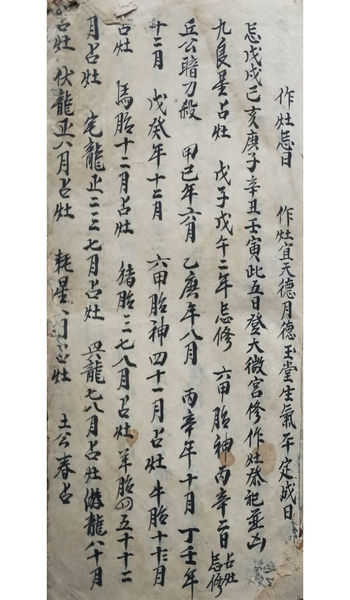 作灶忌日　作灶宜天德月德玉堂生氣平定成日
忌戊戌己亥庚子辛丑壬寅此五日登天微宮修作灶祭祀並凶
九良星占灶　戊子戊午二年忌修　六甲胎神丙辛二日占灶忌修
丘公暗刀殺　甲己年六月　乙庚年八月　丙辛年十月　丁壬年
十二月　戊癸年十二月　六甲胎神四十一月占灶　牛胎十七月
占灶　馬胎十二月占灶　猪胎二七八月占灶　羊胎四五十十二
月占灶　宅龍正二三七月占灶　與龍七八月占灶　游龍八十月
占灶　伏龍正八月占灶　耗星　月占灶　土公春占